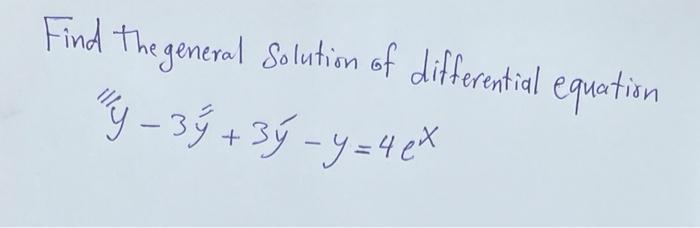 Find the general Solution of differential equation
y''' - 3y'' + 3y' - y = 4e^x